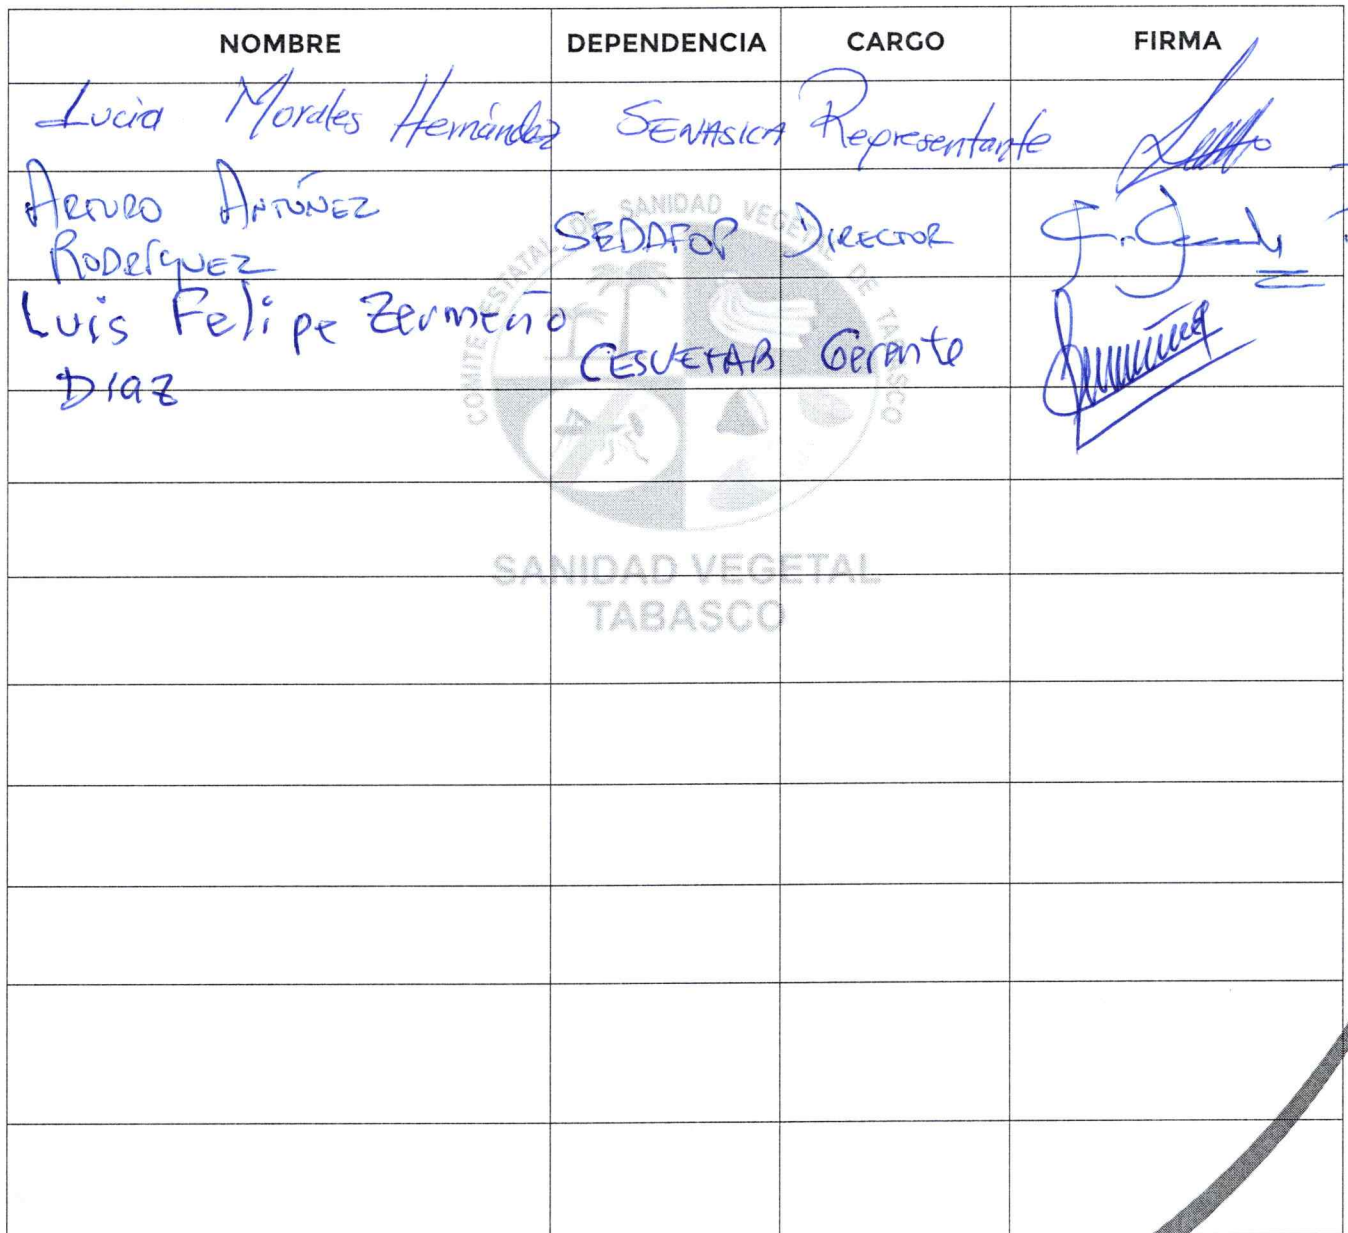 NOMBRE DEPENDENCIA CARGO FIRMA
Lucia Morales Hernández SENASICA Representante
ARTURO ANTÚNEZ
RODRÍGUEZ SEDAFOP DIRECTOR
Luis Felipe Zermeño
DIAZ CESVETAB Gerente
COMITE ESTATAL DE SANIDAD VEGETAL DE TABASCO
SANIDAD VEGETAL
TABASCO